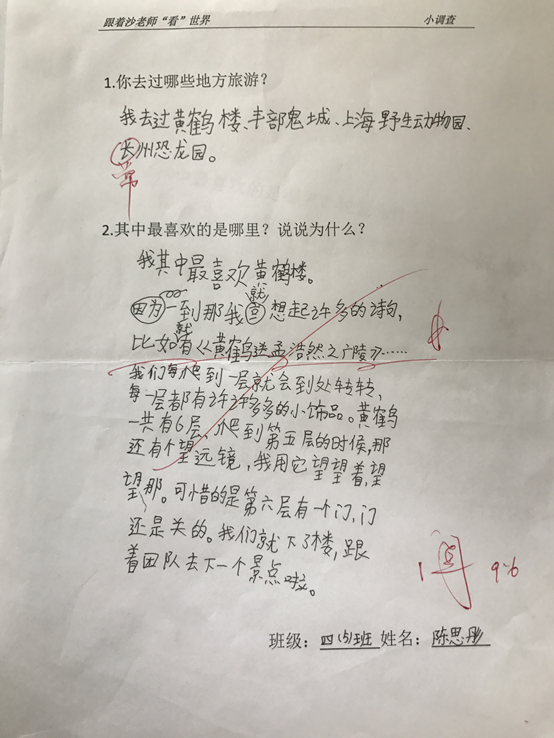 跟着沙老师“看”世界 小调查
1.你去过哪些地方旅游？
我去过黄鹤楼、丰部鬼城、上海野生动物园、
长州恐龙园。
常
2.其中最喜欢的是哪里？说说为什么？
我其中最喜欢黄鹤楼。
就
因为一到那我会想起许多的诗句，
就
比如有《黄鹤送孟浩然之广陵》……
我们每爬到一层就会到处转转，
每一层都有许许多多的小饰品。黄鹤
一共有6层，爬到第五层的时候，那
还有个望远镜，我用它望望着，望
望那。可惜的是第六层有一个门，门
还是关的。我们就下了楼，跟
着团队去下一个景点啦。
阅 9.6
班级：四(5)班 姓名：陈思彤